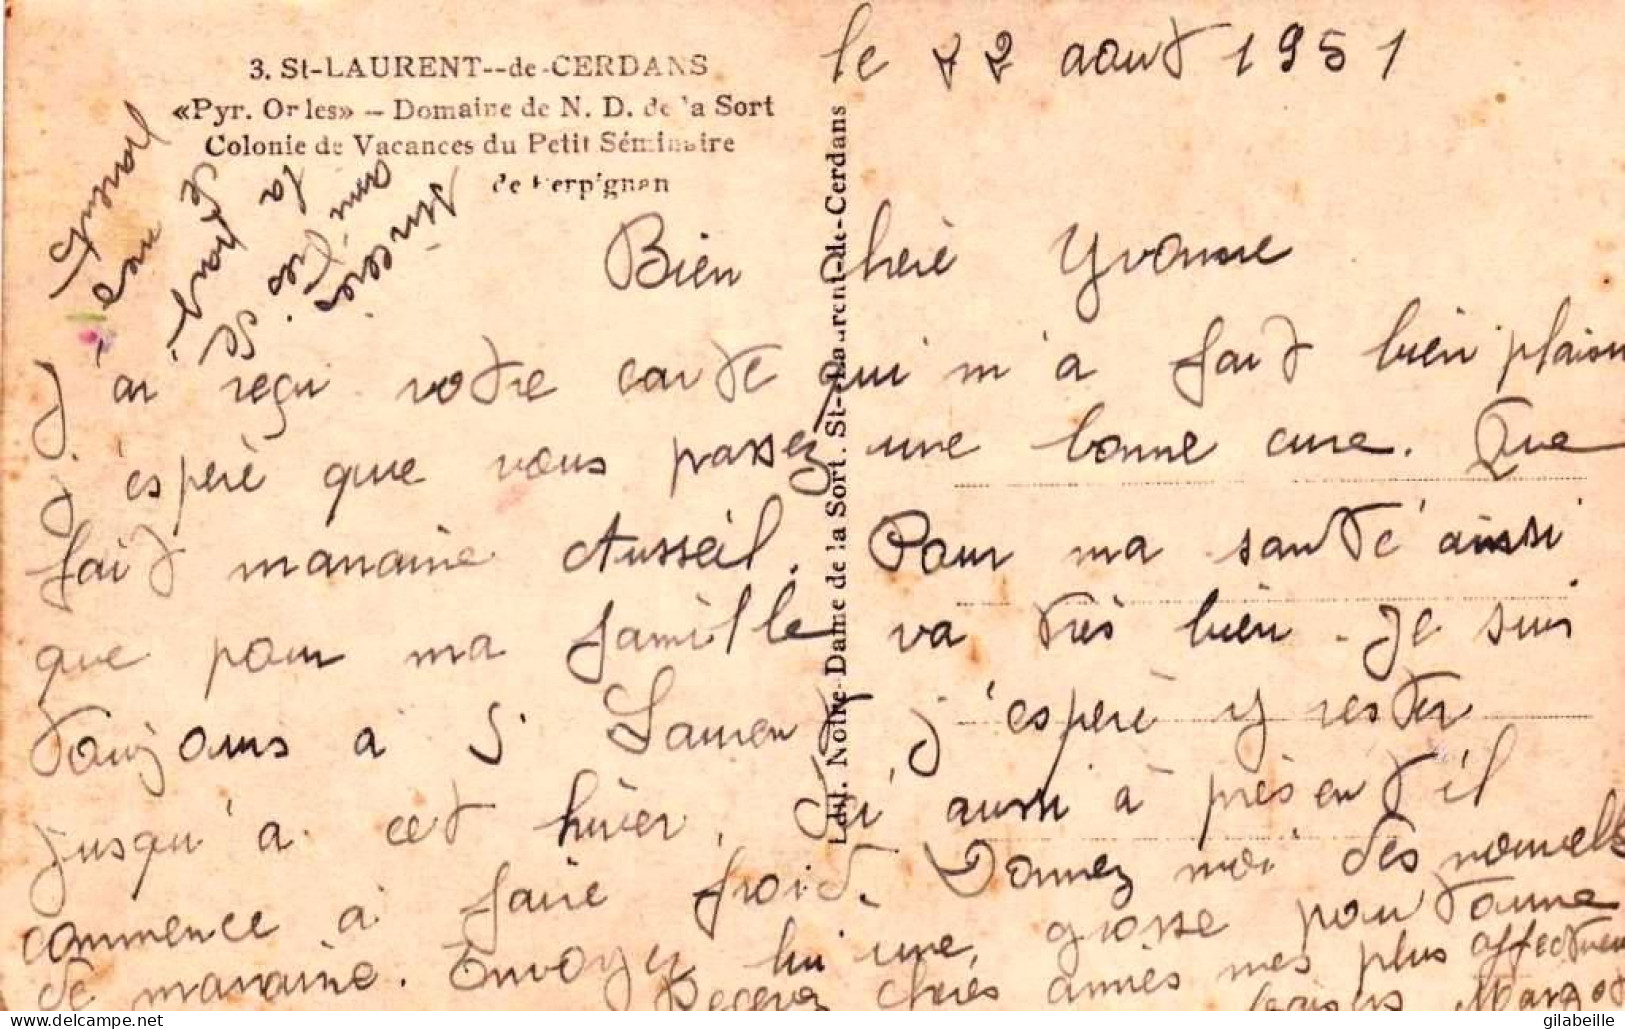 3. St-LAURENT--de-CERDANS
«Pyr. Or les» — Domaine de N. D. de la Sort
Colonie de Vacances du Petit Séminaire
de Perpignan
Edit. Notre-Dame de la Sort. St-Laurent-de-Cerdans
le 22 aout 1951
Bien chere Yvonne
J'ai reçu votre carte qui m'a fait bien plaisir
j'espere que vous passez une bonne cure. Que
fait maraine Ausseil. Pour ma santé ainsi
que pour ma famille va très bien. Je suis
toujours à S. Laurent j'espere y rester
jusqu'a cet hiver. Ici aussi à présent il
commence à faire froid. Donnez moi des nouvelles
de maraine. Envoyez lui une grosse poutoune
Recevez cheres amies mes plus affectueux
baisers Margot
sinceres
amitiés
la
de
gilabeille